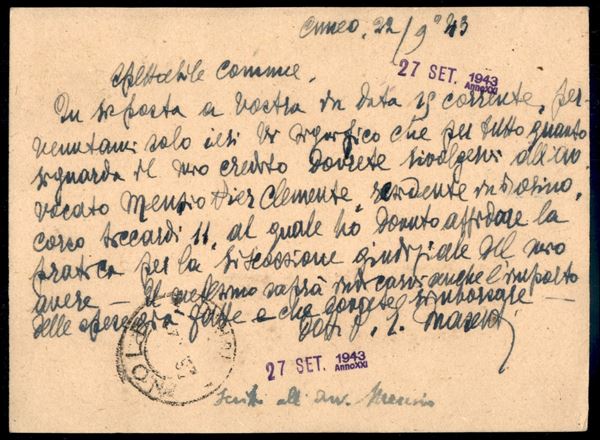 Cuneo, 22/9° 43
27 SET. 1943 Anno XXI
Spettabile Comune.
In risposta a Vostra in data 15 corrente, per-
venutami solo ieri Vi significo che per tutto quanto
riguarda il mio credito dovrete rivolgervi all'av-
vocato Mensio Pier Clemente, residente in Torino,
corso Siccardi 11, al quale ho dovuto affidare la
pratica per la riscossione giudiziale del mio
avere — Il medesimo saprà indicarvi anche l'importo
delle spese già fatte e che dovrete rimborsare! —
27 SET. 1943 Anno XXI
Scritto all'avv. Mensio